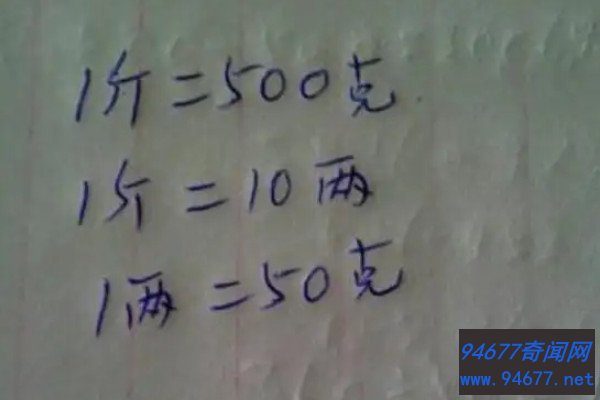 1斤=500克
1斤=10两
1两=50克
94677奇闻网
www.94677.net